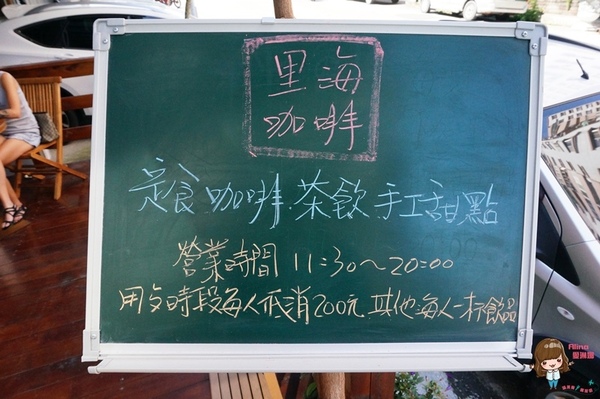 里海
咖啡
定食.咖啡.茶飲.手工甜點
營業時間 11:30~20:00
用歺時段每人低消200元 其他每人一杯飲品
Aling